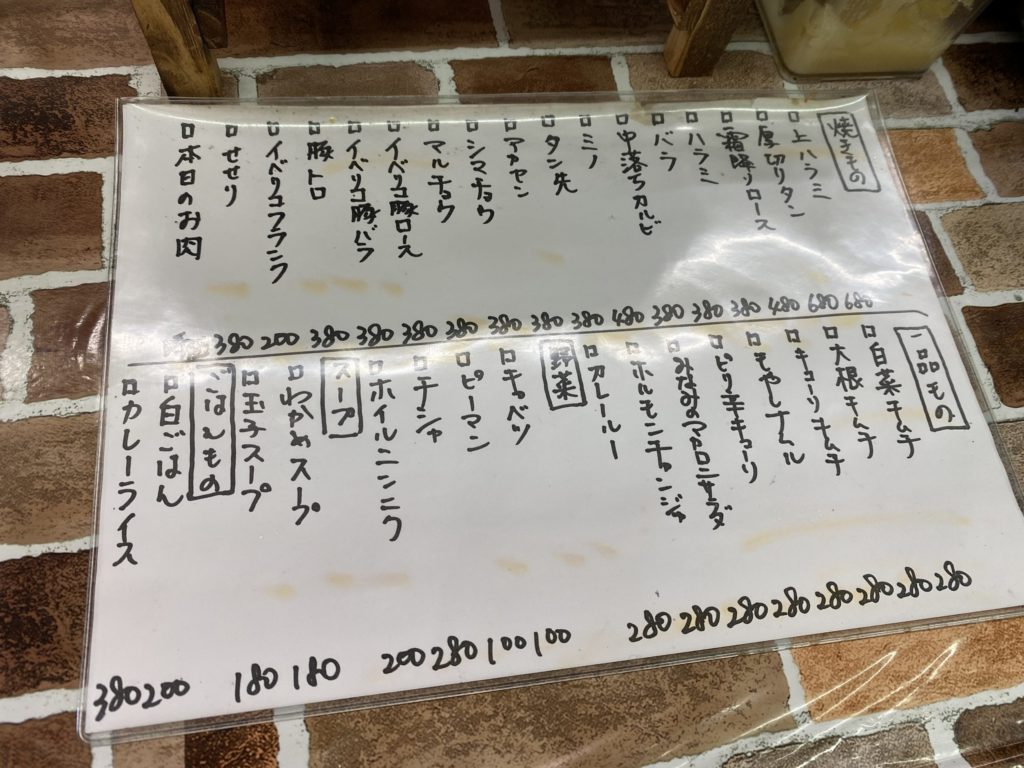 焼きもの
□上ハラミ 680
□厚切りタン 680
□霜降りロース 480
□ハラミ 380
□バラ 380
□中落ちカルビ 380
□ミノ 480
□タン先 380
□アカセン 380
□シマチョウ 380
□マルチョウ 380
□イベリコ豚ロース 380
□イベリコ豚バラ 380
□豚トロ 380
□イベリコフランク 200
□せせり 380
□本日のお肉
一品もの
□白菜キムチ 280
□大根キムチ 280
□キューリキムチ 280
□もやしナムル 280
□ピリ辛キューリ 280
□みなみのマカロニサラダ 280
□ホルモンチャンジャ 280
□カレールー 280
野菜
□キャベツ 100
□ピーマン 100
□チシャ 280
□ホイルニンニク 200
スープ
□わかめスープ 180
□玉子スープ 180
ごはんもの
□白ごはん 200
□カレーライス 380